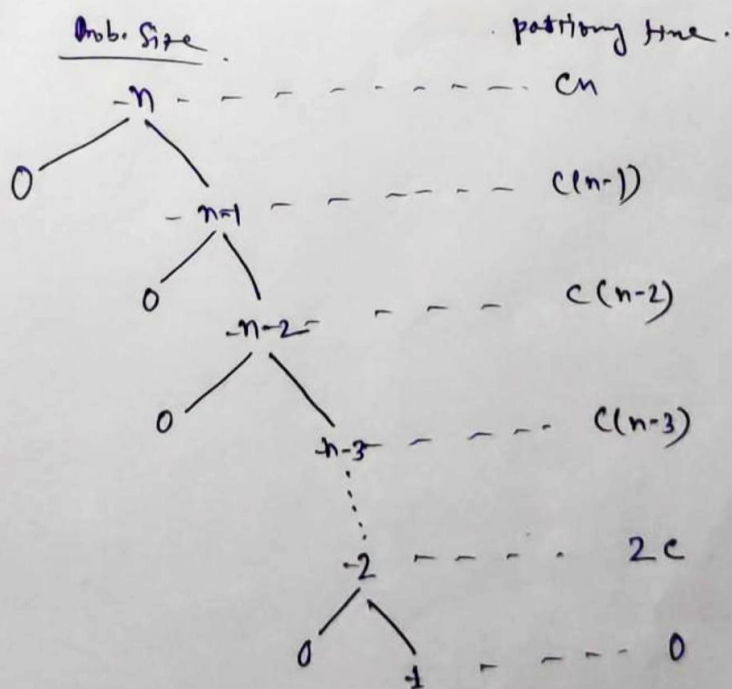 Prob. Size . partiong time.
n cn
0 n-1 c(n-1)
0 n-2 c(n-2)
0 n-3 c(n-3)
2 2c
0 1 0